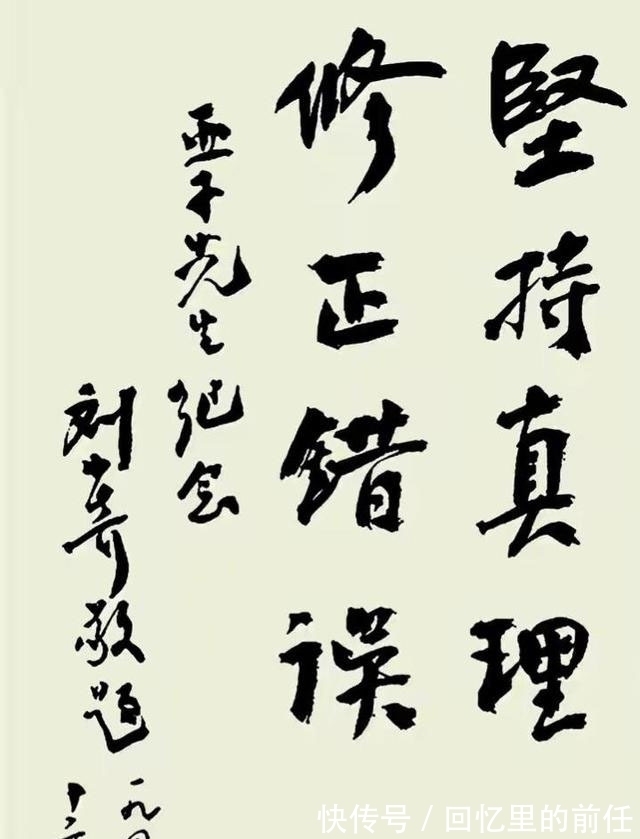 堅持真理
修正錯误
亞子先生纪念
刘少奇敬题
一九四
十二
快传号 / 回忆里的前任